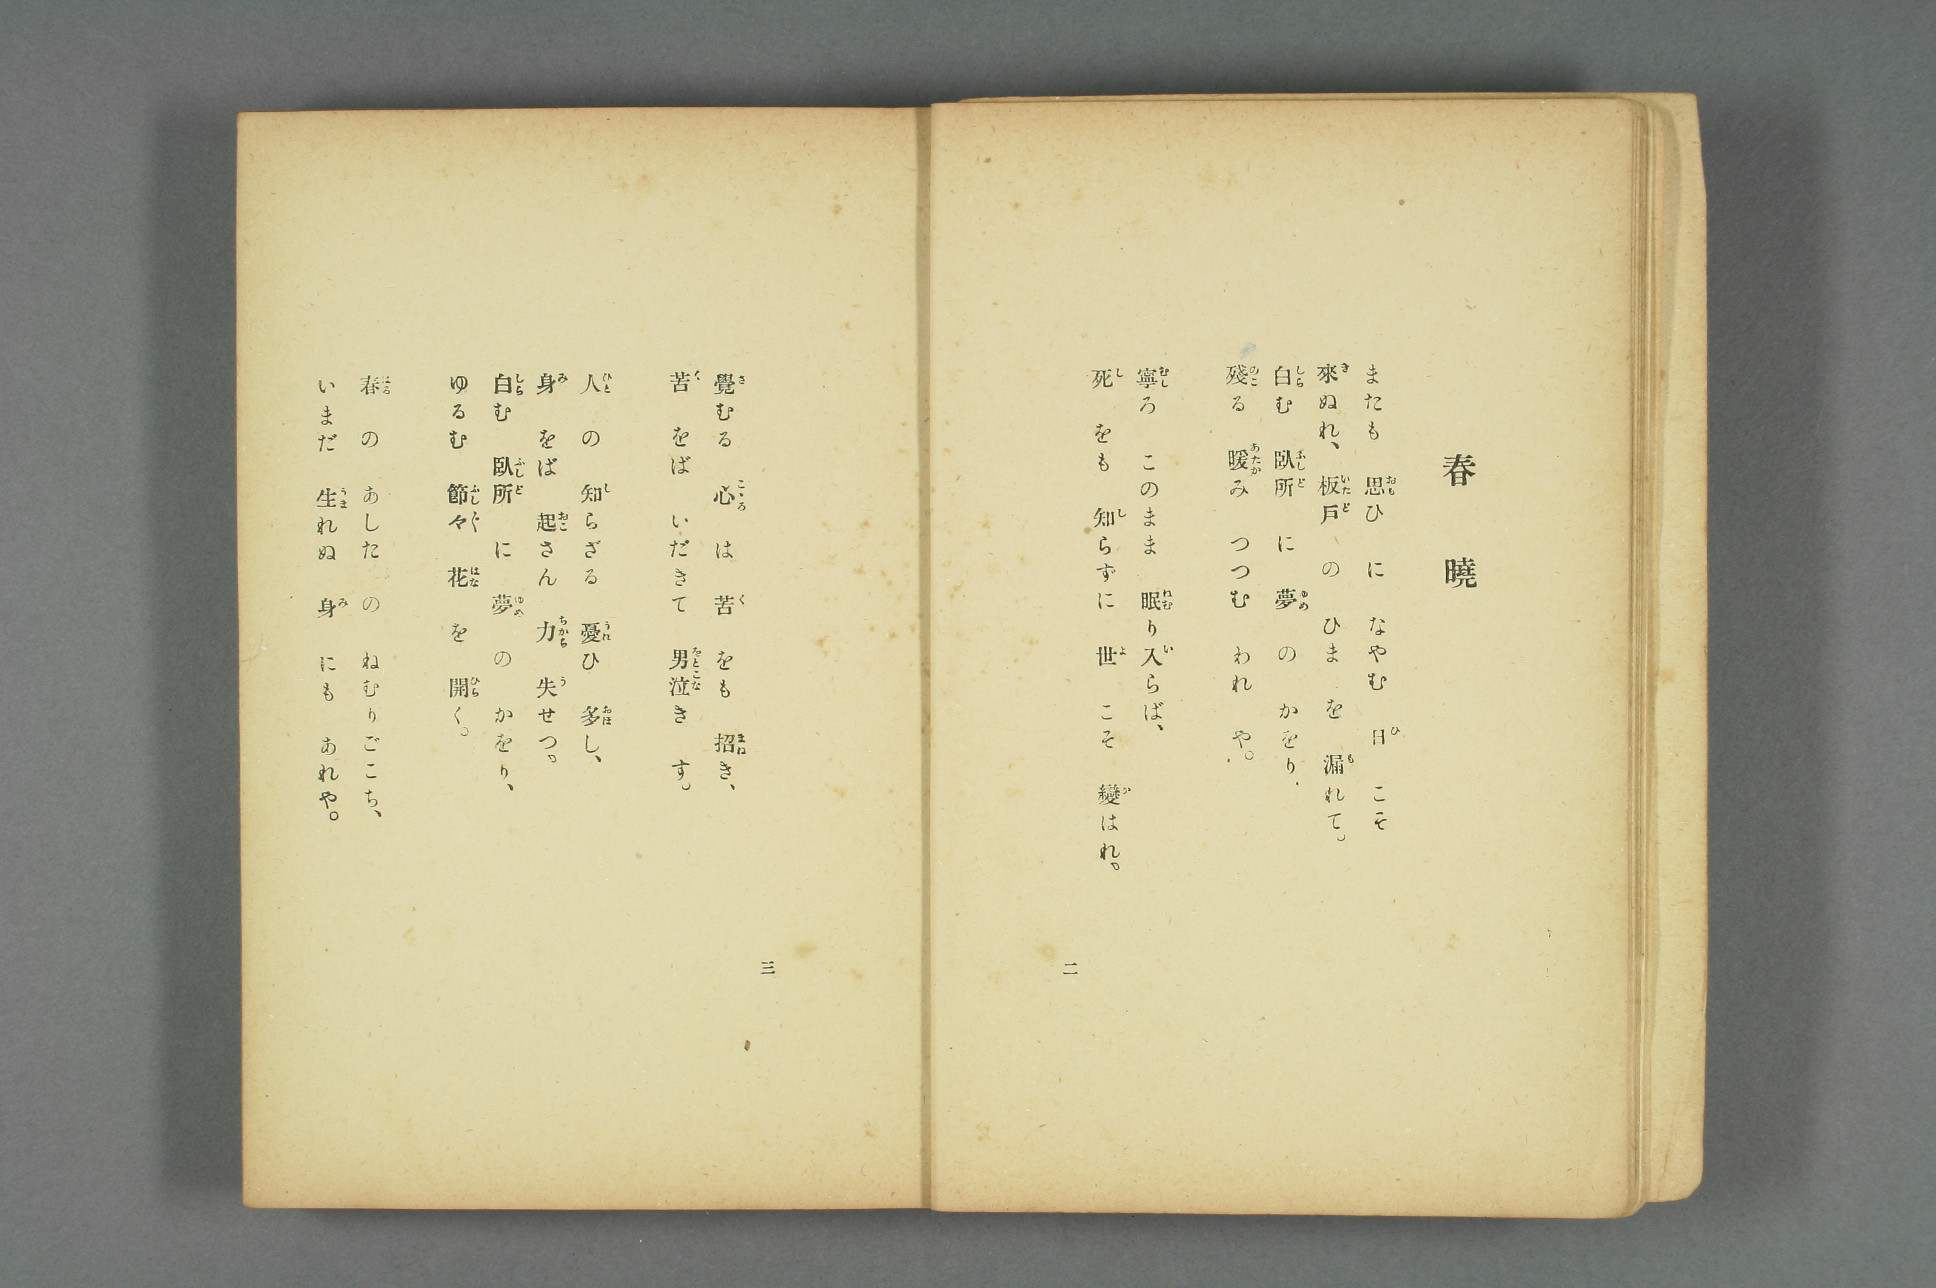 春曉
またも 思ひ に なやむ 日 こそ
來ぬれ、 板戶 の ひま を 漏れて。
白む 臥所 に 夢 の かをり、
殘る 暖み つつむ われ や。
寧ろ このまま 眠り入らば、
死 をも 知らずに 世 こそ 變はれ。
二
覺むる 心 は 苦 をも 招き、
苦 をば いだきて 男泣き す。
人 の 知らざる 憂ひ 多し、
身 をば 起さん 力 失せつ。
白む 臥所 に 夢 の かをり、
ゆるむ 節々 花 を 開く。
春 の あした の ねむりごこち、
いまだ 生れぬ 身 にも あれや。
三